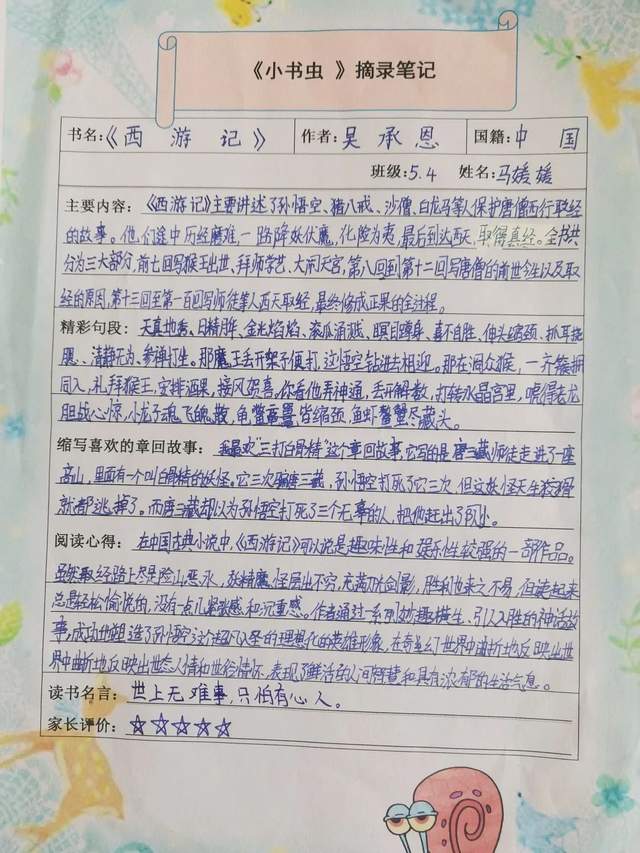 《小书虫 》摘录笔记
书名:《西 游 记》 作者:吴 承 恩 国籍:中 国
班级:5.4 姓名:马媛媛
主要内容:《西游记》主要讲述了孙悟空、猪八戒、沙僧、白龙马等人保护唐僧西行取经
的故事。他们途中历经磨难,一路降妖伏魔,化险为夷,最后到达西天,取得真经。全书共
分为三大部分,前七回写猴王出世、拜师学艺、大闹天宫,第八回到第十二回写唐僧的前世今生以及取
经的原因,第十三回至第一百回写师徒等人西天取经,最终修成正果的全过程。
精彩句段:天真地秀、日精月华、金光焰焰、滚瓜涌溅、瞑目蹲身、喜不自胜、伸头缩颈、抓耳挠
腮、清静无为、参禅打坐。那魔王丢开架子便打,这悟空钻进去相迎。那在洞众猴,一齐簇拥
同入,礼拜猴王,安排酒果,接风贺喜。你看他弄神通,丢开解数,打转水晶宫里,唬得老龙
胆战心惊,小龙子魂飞魄散,龟鳖鼋鼍皆缩颈,鱼虾鳌蟹尽藏头。
缩写喜欢的章回故事:我最欢"三打白骨精"这个章回故事,它写的是唐三藏师徒走进了一座
高山,里面有一个叫白骨精的妖怪。它三次骗唐三藏,孙悟空打死了它三次,但这妖怪天生狡猾
就都逃掉了。而唐三藏却以为孙悟空打死了三个无辜的人,把他赶出了
阅读心得:在中国古典小说中,《西游记》可以说是趣味性和娱乐性较强的一部作品。
虽然取经路上尽是险山恶水,妖精魔怪层出不穷,充满刀光剑影,胜利也来之不易,但读起来
总是轻松愉悦的,没有一点儿紧张感和沉重感。作者通过一系列妙趣横生、引人入胜的神话故
事,成功地塑造了孙悟空这个超凡入圣的理想化的英雄形象,在奇幻世界中曲折地反映出世
界中曲折地反映出世态人情和世俗情怀,表现了鲜活的人间智慧和具有浓郁的生活气息。
读书名言:世上无难事,只怕有心人。
家长评价:☆☆☆☆☆